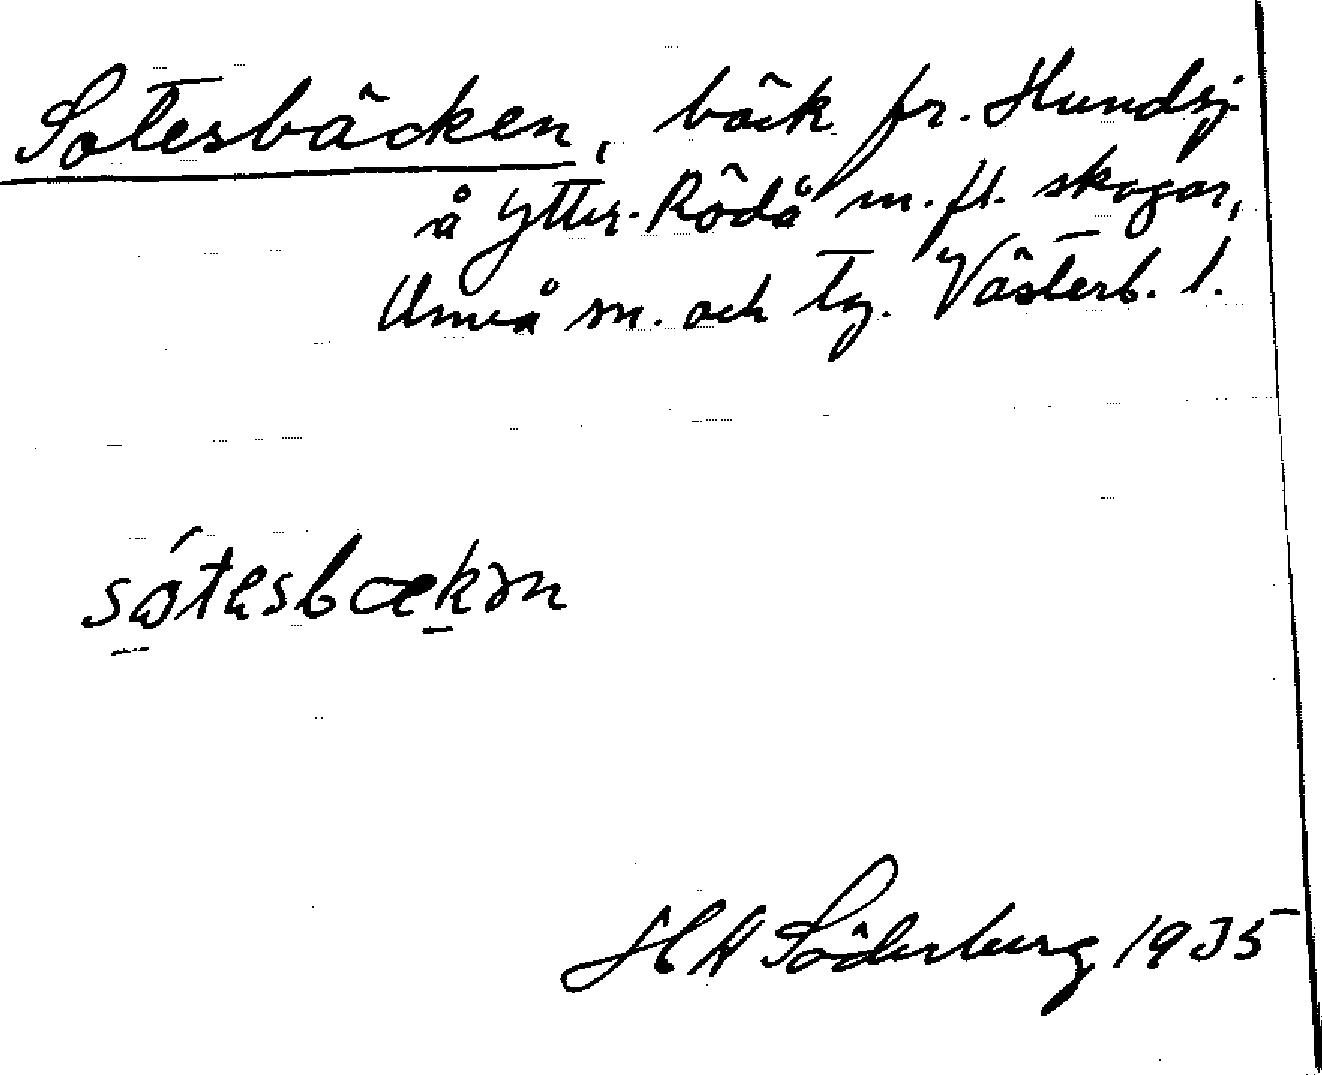 Sotesbäcken, bäck fr. Hundsj.
å Ytter-Rödå m. fl. skogar,
Umeå sn. och tg. Västerb. l.
H A Söderberg 1935